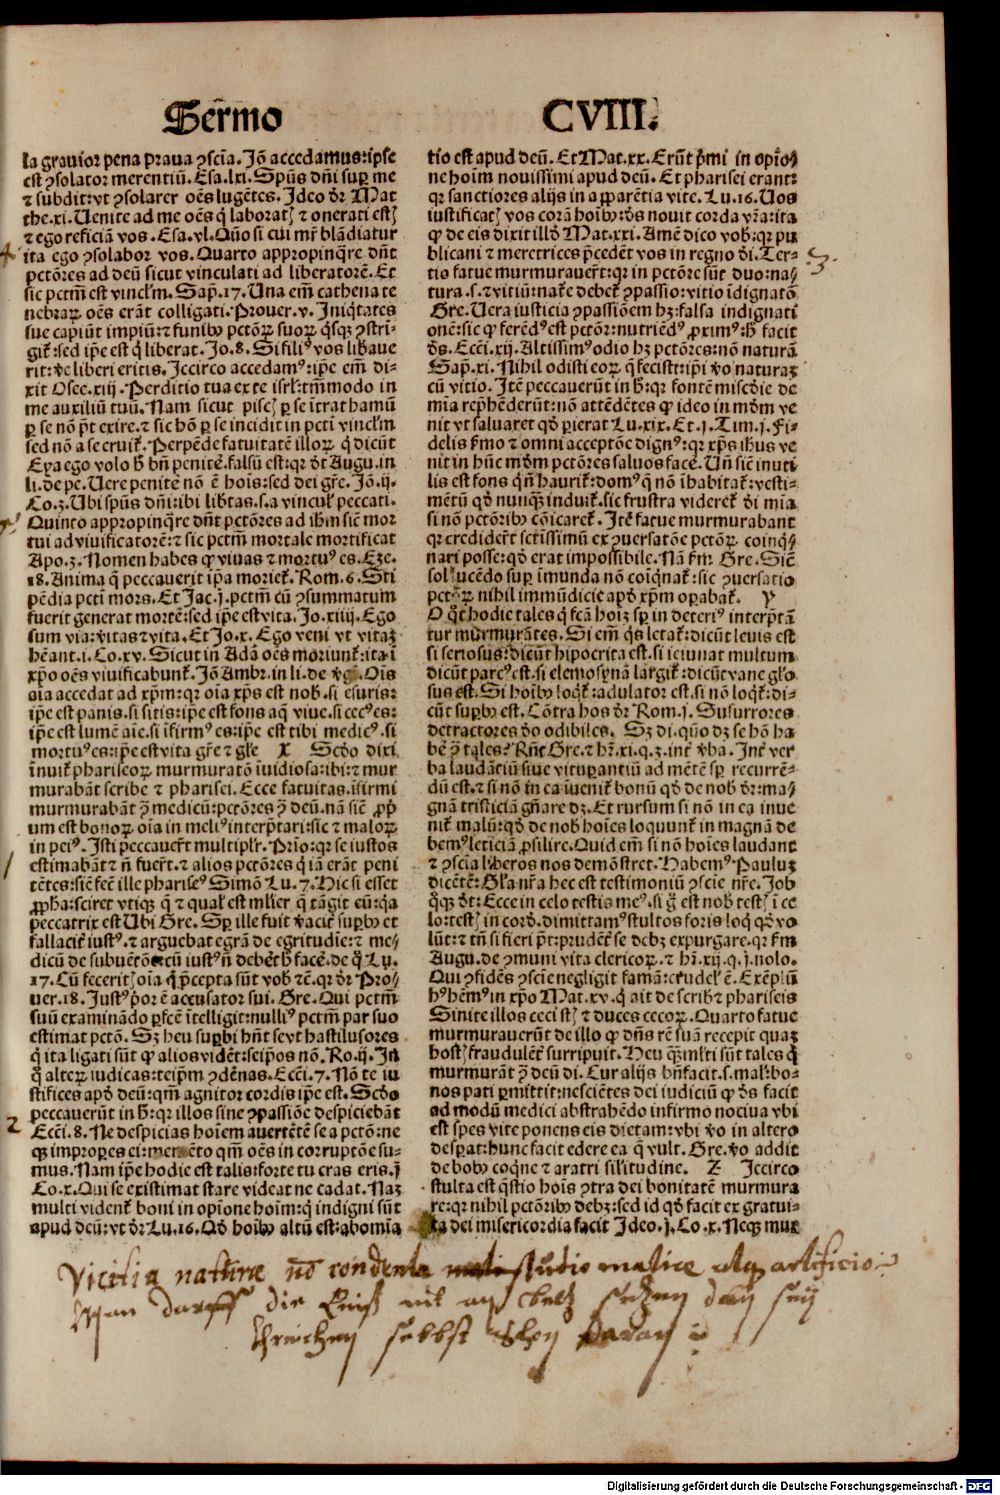 Sermo
CVIII.
la grauior pena praua ↄscīa. Jō accedamus: ipse
est ↄsolator merentiū. Esa. lxi. Spūs dn̄i sup̄ me
⁊ subdit: vt ↄsolarer oēs lugētes. Ideo d̄r Mat
the. xi. Uenite ad me oēs q̄ laboratꝭ ⁊ onerati estꝭ
⁊ ego reficiā vos. Esa. vl. Quō si cui mr̄ blādiatur
ita ego ↄsolabor vos. Quarto appropinq̄re dn̄t
pctōres ad deū sicut vinculati ad liberatorē. Et
sic pctm̄ est vincl̄m. Sap̄. 17. Una em̄ cathena te
nebraꝝ oēs erāt colligati. Prouer. v. Iniq̄tates
sue capiūt impiū: ⁊ funibꝰ pctōꝝ suoꝝ q̄sqꝫ ↄstrī⸗
git̄: sed ip̄e est q̄ liberat. Jo. 8. Si filiꝰ vos libaue
rit: v̄e liberi eritis. Iccirco accedamꝰ: ip̄e em̄ di⸗
xit Osee. xiij. Perditio tua ex te isrl̄: tm̄modo in
me auxiliū tuū. Nam sicut piscꝭ ꝑ se ītrat hamū
ꝑ se nō pt̄ exire. ⁊ sic hō ꝑ se incidit in pcti vincl̄m
sed nō a se eruit̄. Perpēde fatuitatē illoꝝ q̄ dicūt
Eya ego volo h̄ bn̄ penitē. falsū est: qꝛ d̄t Augu. in
li. de pe. Uere penitē nō ē hoīs: sed dei gr̄e. Jō. ij.
Co. 3. Ubi spūs dn̄i: ibi lib̄tas. s. a vincul̄ peccati.
Quinto appropinq̄re dn̄t pctōres ad ih̄m siē mor
tui ad viuificatorē: ⁊ sic pctm̄ mortale mortificat
Apo. 3. Nomen habes ꝙ viuas ⁊ mortuꝰ es. Eze.
18. Anima q̄ peccauerit ip̄a moriet̄. Rom. 6. Sti
pēdia pcti mors. Et Jac. j. pctm̄ cū ↄsummatum
fuerit generat mortē: sed ip̄e est vita. Jo. xiiij. Ego
sum via: v̄itas ⁊ vita. Et Jo. x. Ego veni vt vitaꝫ
hēant. i. Co. xv. Sicut in Adā oēs moriunt̄: ita ī
xp̄o oēs viuificabunt̄. Jō Ambr. in li. de v̄g. Oīs
aīa accedat ad xp̄m: qꝛ oīa xp̄s est nob̄. si esuris:
ip̄e est panis. si sitis: ip̄e est fons aq̄ viue. si cecꝰ es:
ip̄e est lumē aīe. si īfirmꝰ es: ip̄e est tibi medicꝰ. si
mortuꝰ es: ip̄e est vita gr̄e ⁊ gl̄e X Scd̄o dixi
īnuit̄ phariseoꝝ murmuratō īuidiosa: ibi: ⁊ mur
murabāt scribe ⁊ pharisei. Ecce fatuitas. īfirmi
murmurabāt ↄ̄ medicū: pctōres ↄ̄ deū. nā siē ꝓp̄
um est bonoꝝ oīa in meliꝰ interp̄tari: sic ⁊ maloꝝ
in peiꝰ. Isti peccauer̄t multipl̄r. Prīo: qꝛ se iustos
estimabāt ⁊ n̄ fuer̄t. ⁊ alios pctōres q̄ iā erāt peni
tētes: siē fec̄ ille phariseꝰ Simō Lu. 7. Hic si esset
ꝓpha: sciret vtiqꝫ q̄ ⁊ qual̄ est ml̄ier q̄ tāgit eū: q̄a
peccatrix est Ubi Gre. Sꝑ ille fuit v̄acit̄ sup̄bꝰ et
fallacit̄ iustꝰ. ⁊ arguebat egrā de egritudie: ⁊ me⸗
dicū de subuētōe cū iustꝰ n̄ debet h̄ facē. de q̄ Lu.
17. Cū feceritꝭ oīa q̄ p̄cepta sūt vob̄ ⁊c̄. qꝛ d̄r Pro⸗
uer. 18. Iustꝰ p̄or ē accusator sui. Gre. Qui pctm̄
suū examinādo ꝑfcē ītelligit: nulliꝰ pctm̄ par suo
estimat pctō. Sꝫ heu sup̄bi hn̄t se vt hastilusores
q̄ ita ligati sūt ꝙ alios vidēt: seip̄os nō. Ro. ij. In
q̄ alteꝝ iudicas: teip̄m ↄdēnas. Ecci. 7. Nō te iu
stifices apd̄ deū: qm̄ agnitor cordis ip̄e est. Scd̄o
peccauerūt in h̄: qꝛ illos sine ↄpassiōe despiciebāt
Ecci. 8. Ne despicias hoīem auertētē se a pctō: ne
qꝫ impropes ei: memēto qm̄ oēs in corruptōe su⸗
mus. Nam ip̄e hodie est talis: forte tu cras eris. j.
Co. x. Qui se existimat stare videat ne cadat. Naꝫ
multi vident̄ boni in opione hoīm: q̄ indigni sūt
apud deū: vt d̄r Lu. 16. Qd̄ hoībꝰ altū est: abomīa
tio est apud deū. Et Mat. xx. Erūt p̄mi in opīo⸗
ne hoīm nouissimi apud deū. Et pharisei erant:
qꝛ sanctiores alijs in apparētia vite. Lu. 16. Uos
iustificatꝭ vos corā hoībꝰ: de̾s nouit corda v̄ra: ita
ꝙ de eis dixit illd̄ Mat. xxi. Amē dico vob̄: qꝛ pu
blicani ⁊ meretrices p̄cedēt vos in regno di. Ter⸗
tio fatue murmurauer̄t: qꝛ in pctōre sūt duo: na⸗
tura. s. ⁊ vitiū: nat̄e debet̄ ↄpassio: vitio īdignatō
Gre. Uera iusticia ↄpassiōem hꝫ: falsa indignati
onē: sic ꝙ ferēdꝰ est pctōr: nutriēdꝰ ꝓximꝰ: h̄ facit
d̄s. Ecci. xij. Altissimꝰ odio hꝫ pctōres: nō naturā
Sap̄. xi. Nihil odisti eoꝝ q̄ fecisti: ip̄i v̄o naturaꝫ
cū vitio. Itē peccauerūt in h̄: qꝛ fontē misc̄die de
mīa rep̄hēderūt: nō attēdētes ꝙ ideo in mōm ve
nit vt saluaret qd̄ ꝑierat Lu. xix. Et. j. Tim. j. Fi⸗
delis s̄mo ⁊ omni acceptōe dignꝰ: qꝛ xp̄s ih̄us ve
nit in hūc mōm pctōres saluos facē. Un̄ siē inuti
lis est fons q̄ n̄ haurit̄: domꝰ q̄ nō īhabitat̄: vesti⸗
mētū qd̄ nunqꝫ induit̄. sic frustra videret̄ di mīa
si nō pctōribꝰ cōicaret̄. Itē fatue murmurabant
qꝛ crediderūt sctissimū ex ↄuersatōe pctōꝝ coinq̄⸗
nari posse: qd̄ erat impossibile. Nā s̄m Gre. Siē
sol lucēdo sup̄ īmunda nō coiq̄nat̄: sic ↄuersatio
pctōꝝ nihil immūdicie apd̄ xp̄m oꝑabat̄. Y
O q̄t hodie tales q̄ fcā hoiꝫ sꝑ in deteriꝰ interp̄tā
tur murmurātes. Si em̄ q̄s letat̄: dicūt leuis est
si seriosus: dicūt hipocrita est. si ieiunat multum
dicūt parcꝰ est. si elemosynā largit̄: dicūt vane glo
sus est. Si hoībꝰ loqt̄: adulator est. si nō loqt̄: di⸗
cūt sup̄bꝰ est. Cōtra hos d̄r Rom. j. Susurrores
detractores deo odibiles. Sꝫ di. quō dꝫ se hō ha
bē ↄ̄ tales? Rn̄t Gre. ⁊ hr̄. xi. q. 3. int̄ v̄ba. Int̄ ver
ba laudātiū siue vituꝑantiū ad mētē sꝑ recurrē⸗
dū est. ⁊ si nō in ea iuenit̄ bonū qd̄ de nob̄ d̄r: ma⸗
gnā tristiciā gn̄are dꝫ. Et rursum si nō in ea inue
nit̄ malū: qd̄ de nob̄ hoīes loquunt̄ in magnā de
bemꝰ leticiā ꝓsilire. Quid em̄ si nō hoīes laudant
⁊ ↄscia liberos nos demōstret. Habemꝰ Pauluꝫ
dicētē: Gl̄ia nr̄a hec est testimoniū ↄscie nr̄e. Job
q̄qꝫ d̄t: Ecce in celo testis meꝰ. si g̊ est nob̄ testꝭ ī ce
lo: testꝭ in cord̄. dimittamꝰ stultos foris loq̄ qd̄ vo
lūt: ⁊ tn̄ si fieri pt̄: prudēt̄ se debꝫ expurgare. qꝛ s̄m
Augu. de ↄmuni vita clericoꝝ. ⁊ hr̄. xij. q. j. nolo.
Qui ↄfidēs ↄsciē negligit famā: crudel̄ ē. Exēplū
hꝰ hēmꝰ in xp̄o Mat. xv. q̄ ait de scrib̄ ⁊ phariseis
Sinite illos ceci stꝭ ⁊ duces cecoꝝ. Quarto fatue
murmurauerūt de illo ꝙ dn̄s rē suā recepit quaꝫ
hostꝭ fraudulēt̄ surripuit. Heu qꝫ ml̄ti sūt tales q̄
murmurāt ↄ̄ deū di. Cur alijs bn̄facit. s. mal̄: bo⸗
nos pati ꝑmittit: nesciētes dei iudiciū ꝙ d̄s facit
ad modū medici abstrahēdo infirmo nociua vbi
est spes vite ponens eis dietam: vbi v̄o in altero
desꝑat: hunc facit edere ea q̄ vult. Gre. v̄o addit
de bobꝰ coqn̄e ⁊ aratri sil̄itudine. Z Iccirco
stulta est q̄stio hoīs ↄtra dei bonitatē murmura
re: qꝛ nihil pctōribꝰ debꝫ: sed id qd̄ facit ex gratui⸗
ta dei misericordia facit Ideo. j. Co. x. Neqꝫ mur
4
5
1
2
3.
naturæ nō condenda studio malice atqꝫ artificio
Man darff die
selbst schon daran
Digitalisierung gefördert durch die Deutsche Forschungsgemeinschaft - DFG